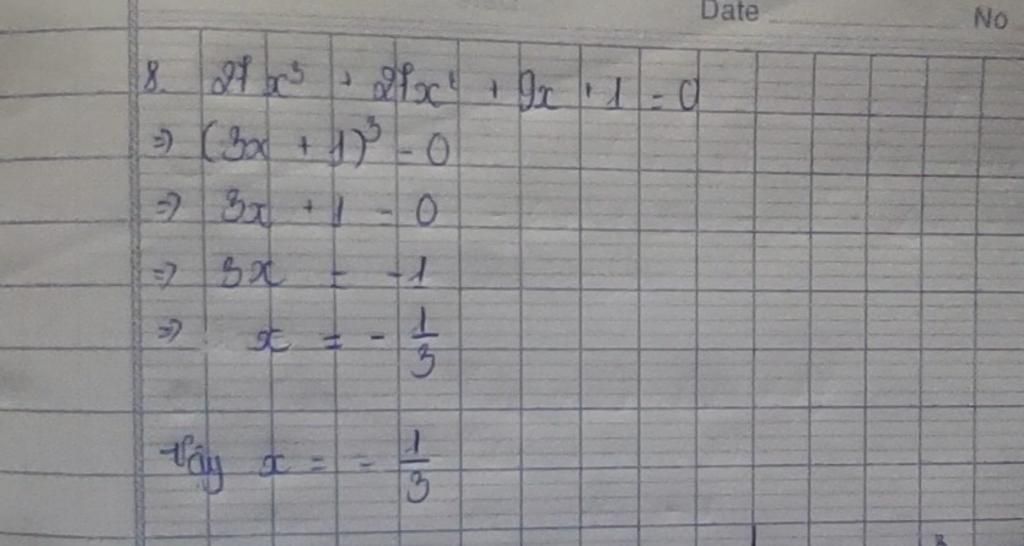 Date No
8. 27x³ + 27x² + 9x + 1 = 0
=> (3x + 1)³ = 0
=> 3x + 1 = 0
=> 3x = -1
=> x = - 1/3
Vậy x = - 1/3